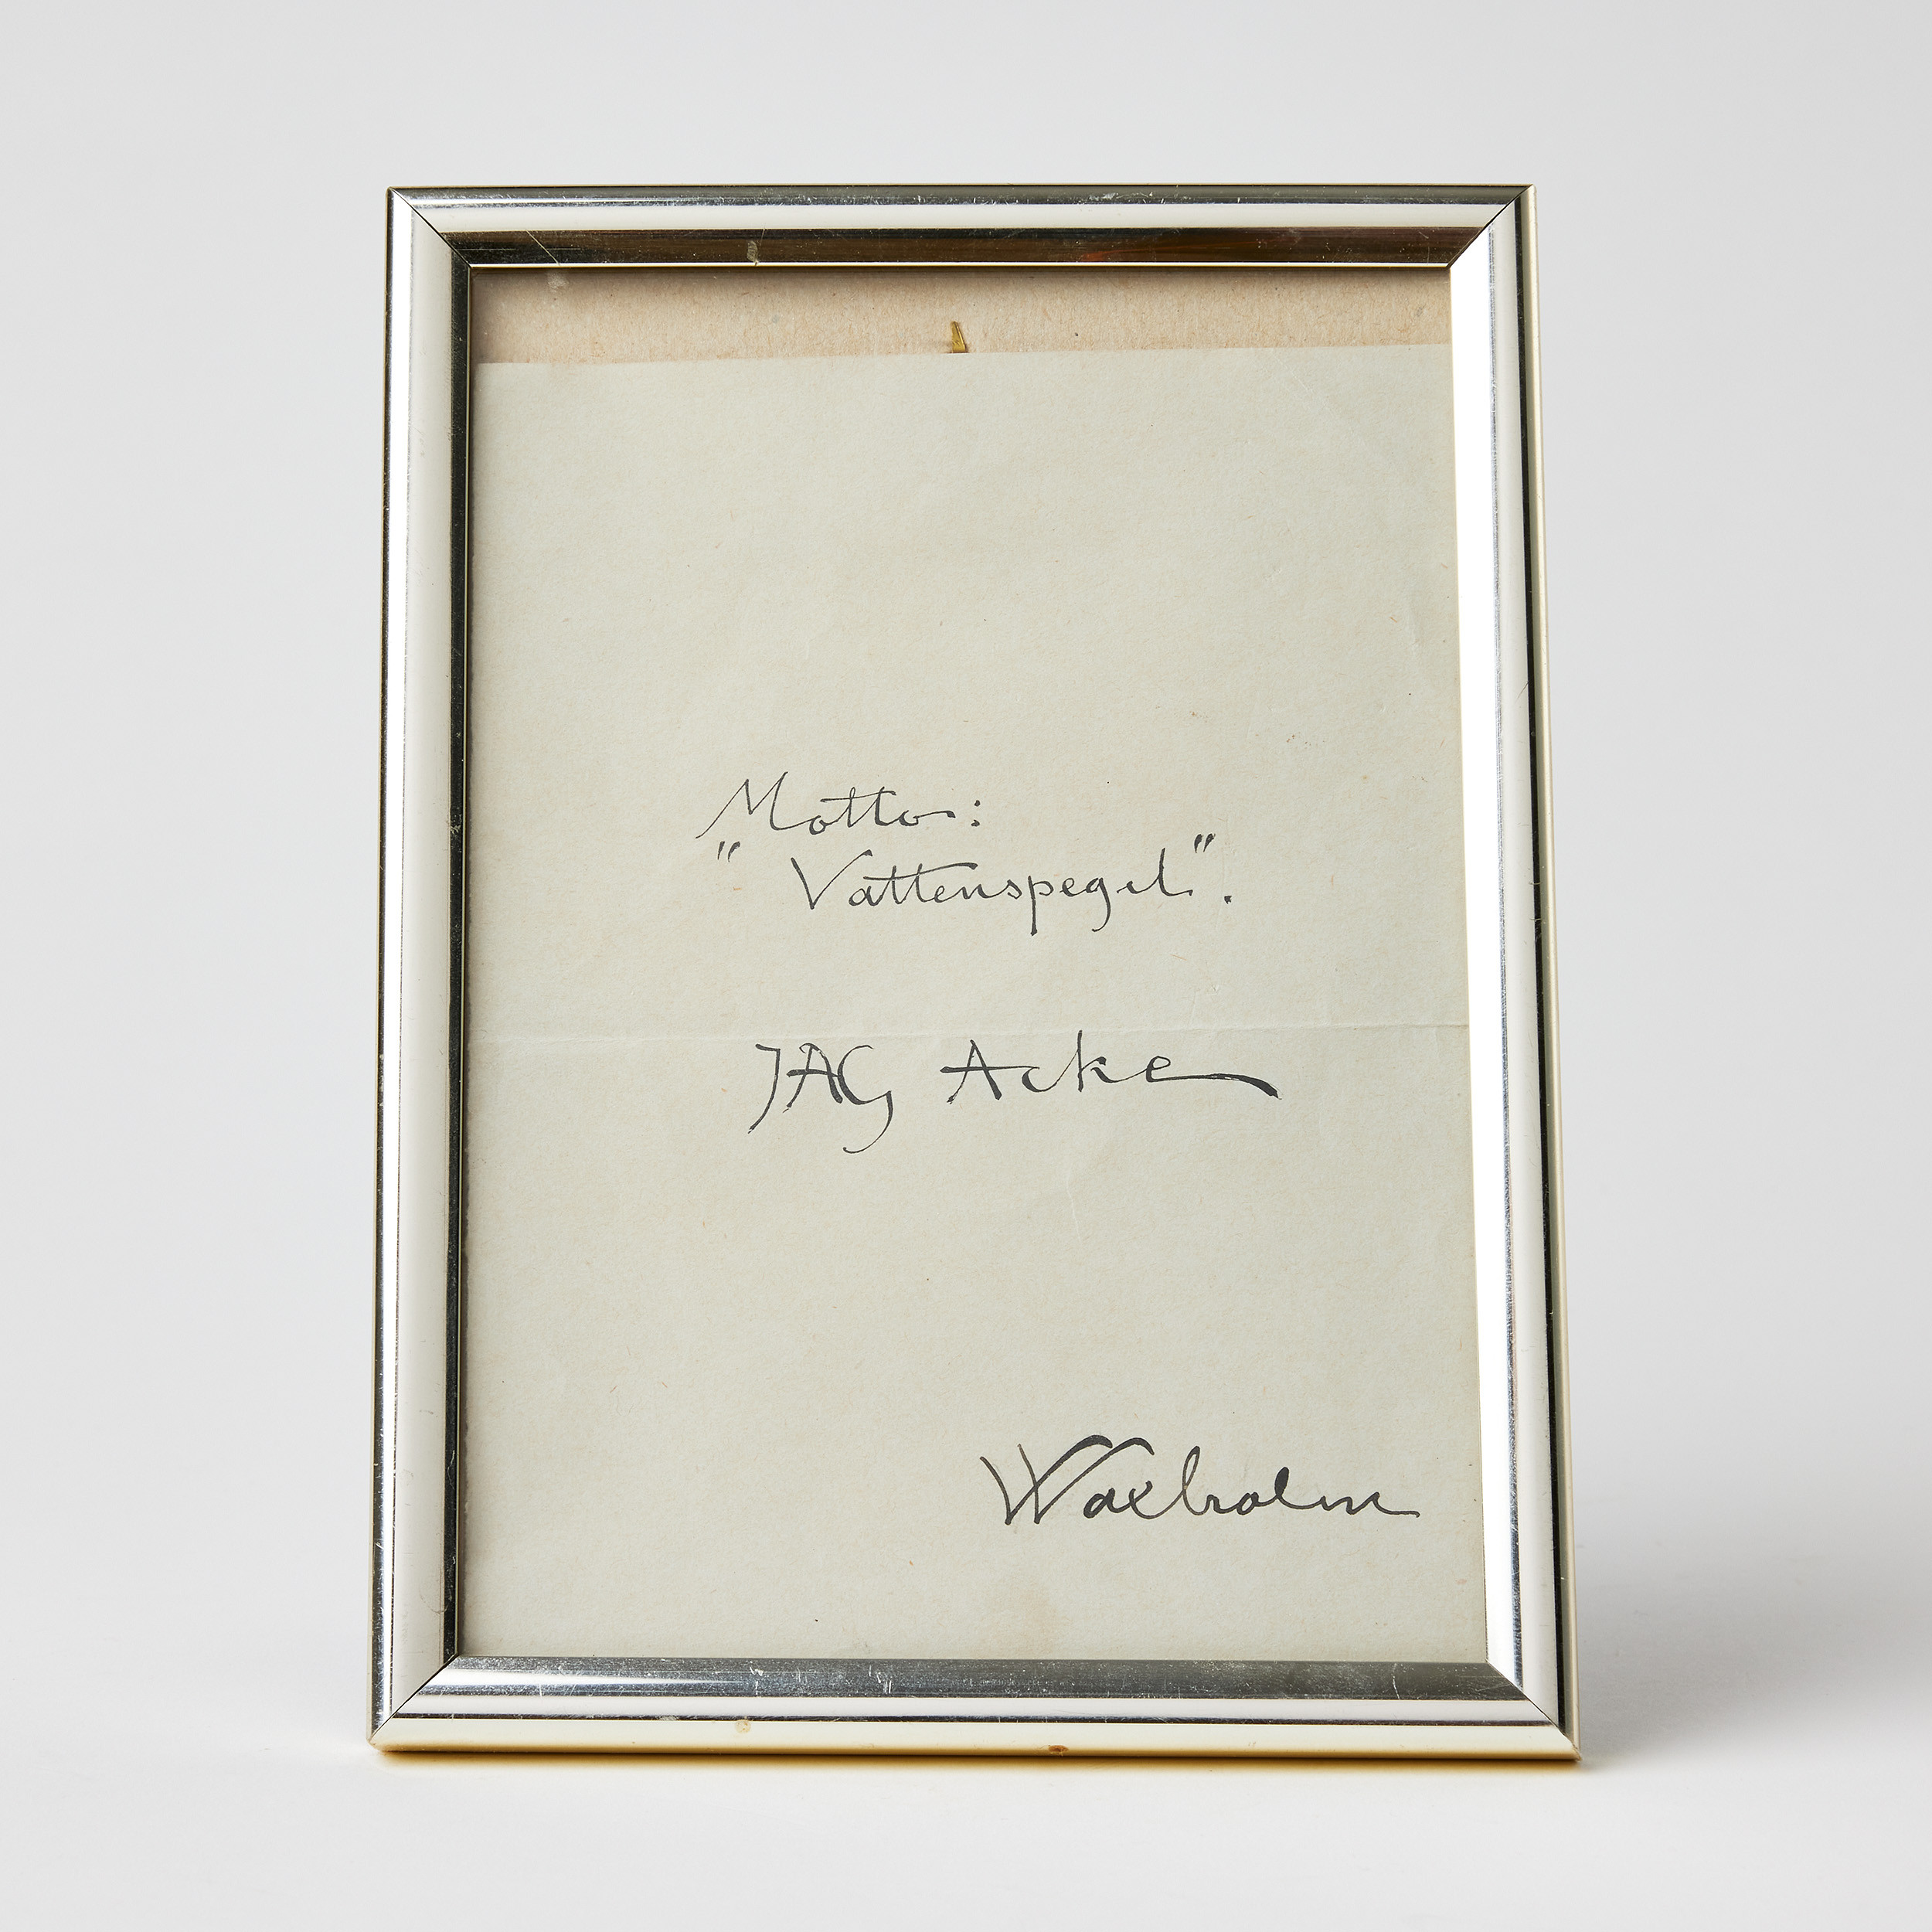 Motto:
" Vattenspegel".
JAG Acke
Waxholm